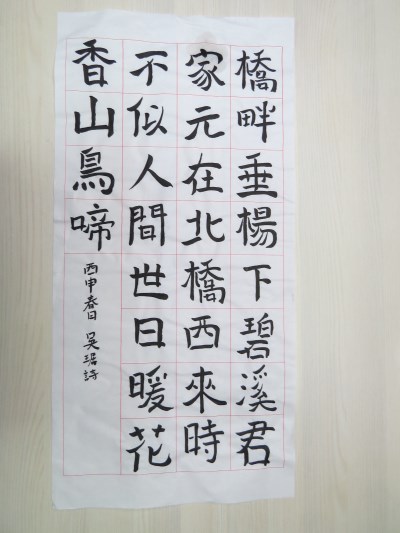 橋畔垂楊下碧溪君
家元在北橋西來時
不似人間世日暖花
香山鳥啼
丙申春日 吴琚詩